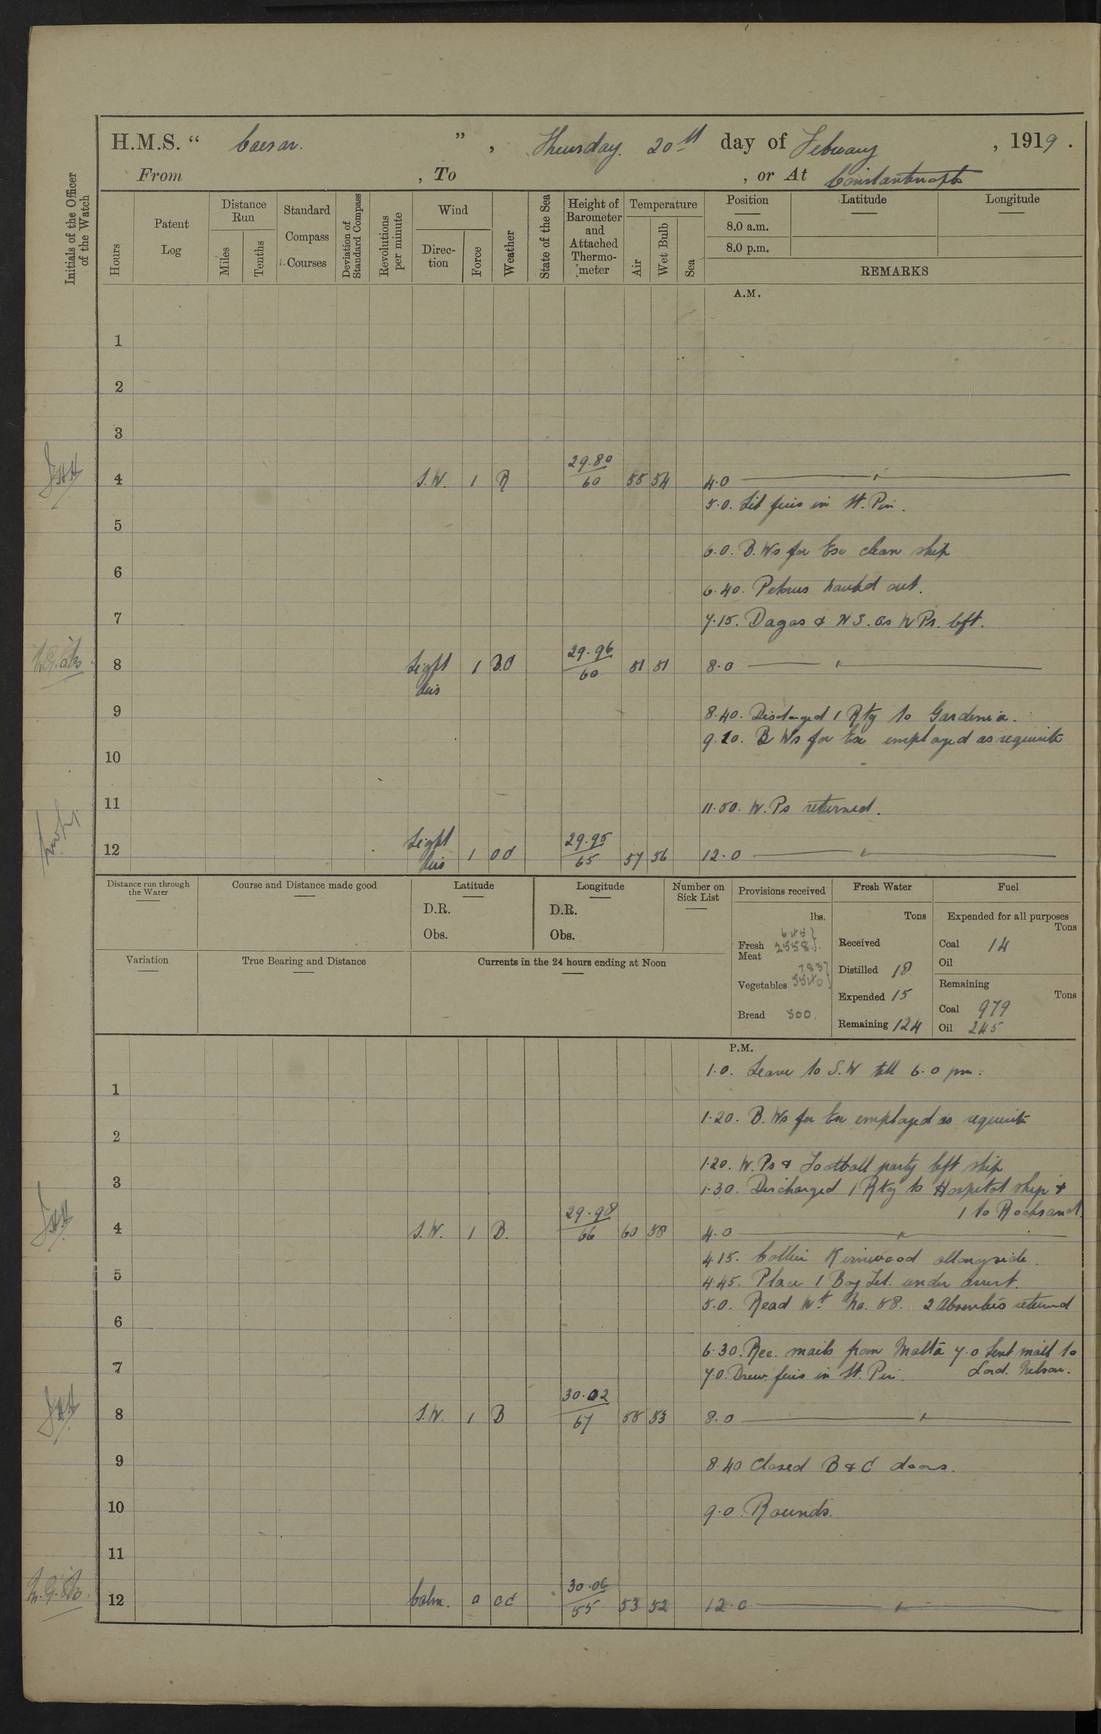 H.M.S. “ Caesar. ”, Thursday. 20th day of February, 1919.
From , To , or At Constantinople
Initials of the Officer of the Watch
Hours
Patent Log
Distance Run
Miles
Tenths
Standard Compass Courses
Deviation of Standard Compass
Revolutions per minute
Wind
Direction
Force
Weather
State of the Sea
Height of Barometer and Attached Thermometer
Temperature
Air
Wet Bulb
Sea
Position
Latitude
Longitude
8.0 a.m.
8.0 p.m.
REMARKS
A.M.
1
2
3
4 S.W. 1 R 29.80 60 55 54 4.0 "
5.0. Lit fires in St. Pin.
5
6.0. B.Ws for Ex clean ship
6
6.40. Petrus hauled out.
7
7.15. Dagas & N.S. as W Ps. left.
8 Light Airs 1 B.C 29.96 60 51 51 8.0 "
9
8.40. Discharged 1 Rtg to Gardenia.
9.20. B Ws for Ex employed as requisite
10
11
11.50. W.Ps returned.
12 Light Airs 1 od 29.95 65 57 56 12.0 "
Distance run through the Water
Course and Distance made good
Latitude
D.R.
Obs.
Longitude
D.R.
Obs.
Number on Sick List
Variation
True Bearing and Distance
Currents in the 24 hours ending at Noon
Provisions received
lbs.
Fresh Meat 2558
Vegetables
Bread 500.
Fresh Water
Tons
Received
Distilled 18
Expended 15
Remaining 124
Fuel
Expended for all purposes
Tons
Coal 14
Oil
Remaining
Tons
Coal 979
Oil 245
P.M.
1.0. Leave to S.W till 6.0 pm.
1
1.20. B.Ws for Ex employed as requisite
2
1.20. W.Ps & Football party left ship
3
1.30. Discharged 1 Rtg to Hospital ship &
1 to Rocksand.
4 S.W. 1 B. 29.98 66 60 58 4.0 "
4.15. Collier Kirnwood allongside.
5
4.45. Place 1 Boy Tel. under arrest.
5.0. Read Wt No. 58. 2 Absentees returned
6
6.30. Rec. mails from Malta 7.0 Sent mail to
Lord Nelson.
7
7.0. Drew fires in St. Pin.
8 S.W. 1 B 30.02 67 55 53 8.0 "
9
8.40 Closed B & C doors.
10
9.0. Rounds.
11
12 Calm. 0 od 30.06 55 53 52 12.0 "